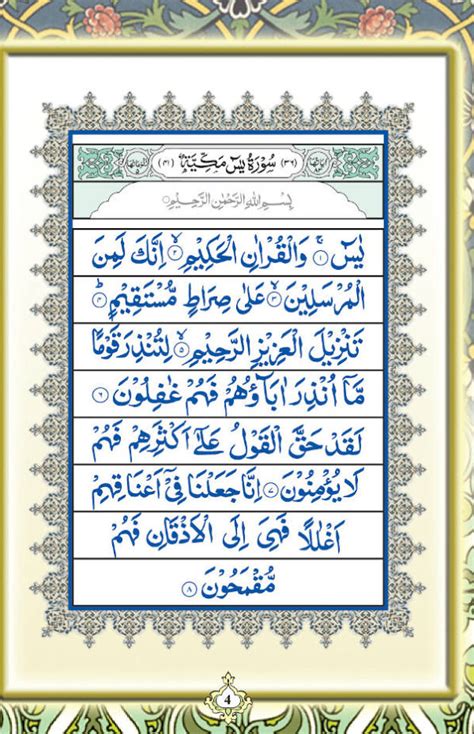 سُوْرَةُ يٰسٓ مَكِّيَّةٌ (٣٦) (٤١)
بِسْمِ اللّٰهِ الرَّحْمٰنِ الرَّحِيْمِ
يٰسٓ ۝١ وَالْقُرْاٰنِ الْحَكِيْمِ ۝٢ اِنَّكَ لَمِنَ
الْمُرْسَلِيْنَ ۝٣ عَلٰى صِرَاطٍ مُّسْتَقِيْمٍ ۝٤
تَنْزِيْلَ الْعَزِيْزِ الرَّحِيْمِ ۝٥ لِتُنْذِرَ قَوْمًا
مَّاۤ اُنْذِرَ اٰبَآؤُهُمْ فَهُمْ غٰفِلُوْنَ ۝٦
لَقَدْ حَقَّ الْقَوْلُ عَلٰٓى اَكْثَرِهِمْ فَهُمْ
لَا يُؤْمِنُوْنَ ۝٧ اِنَّا جَعَلْنَا فِيْۤ اَعْنَاقِهِمْ
اَغْلٰلًا فَهِىَ اِلَى الْاَذْقَانِ فَهُمْ
مُّقْمَحُوْنَ ۝٨
4